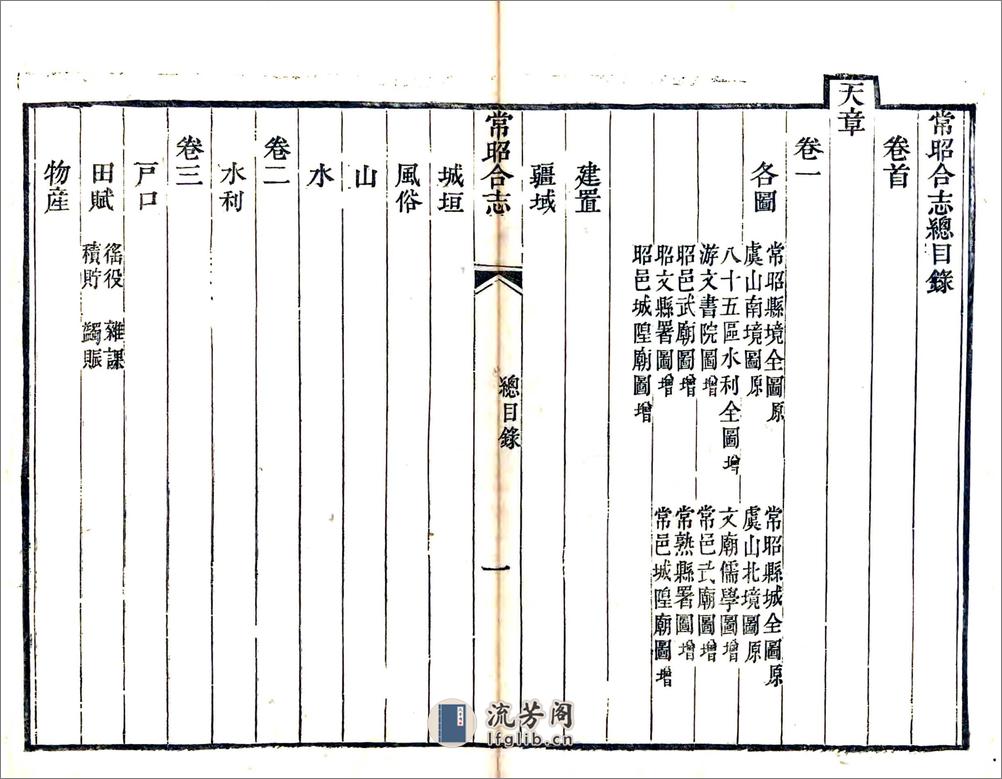 常昭合志總目錄
卷首
天章
卷一
各圖
常昭縣境全圖原
常昭縣城全圖原
虞山南境圖原
虞山北境圖原
八十五區水利全圖增
文廟儒學圖增
游文書院圖增
常邑武廟圖增
昭邑武廟圖增
常熟縣署圖增
昭文縣署圖增
常邑城隍廟圖增
昭邑城隍廟圖增
建置
疆域
常昭合志
總目錄
一
城垣
風俗
山
水
卷二
水利
卷三
戸口
田賦
徭役 雜課
積貯 蠲賑
物産
流芳阁
lfglib.cn